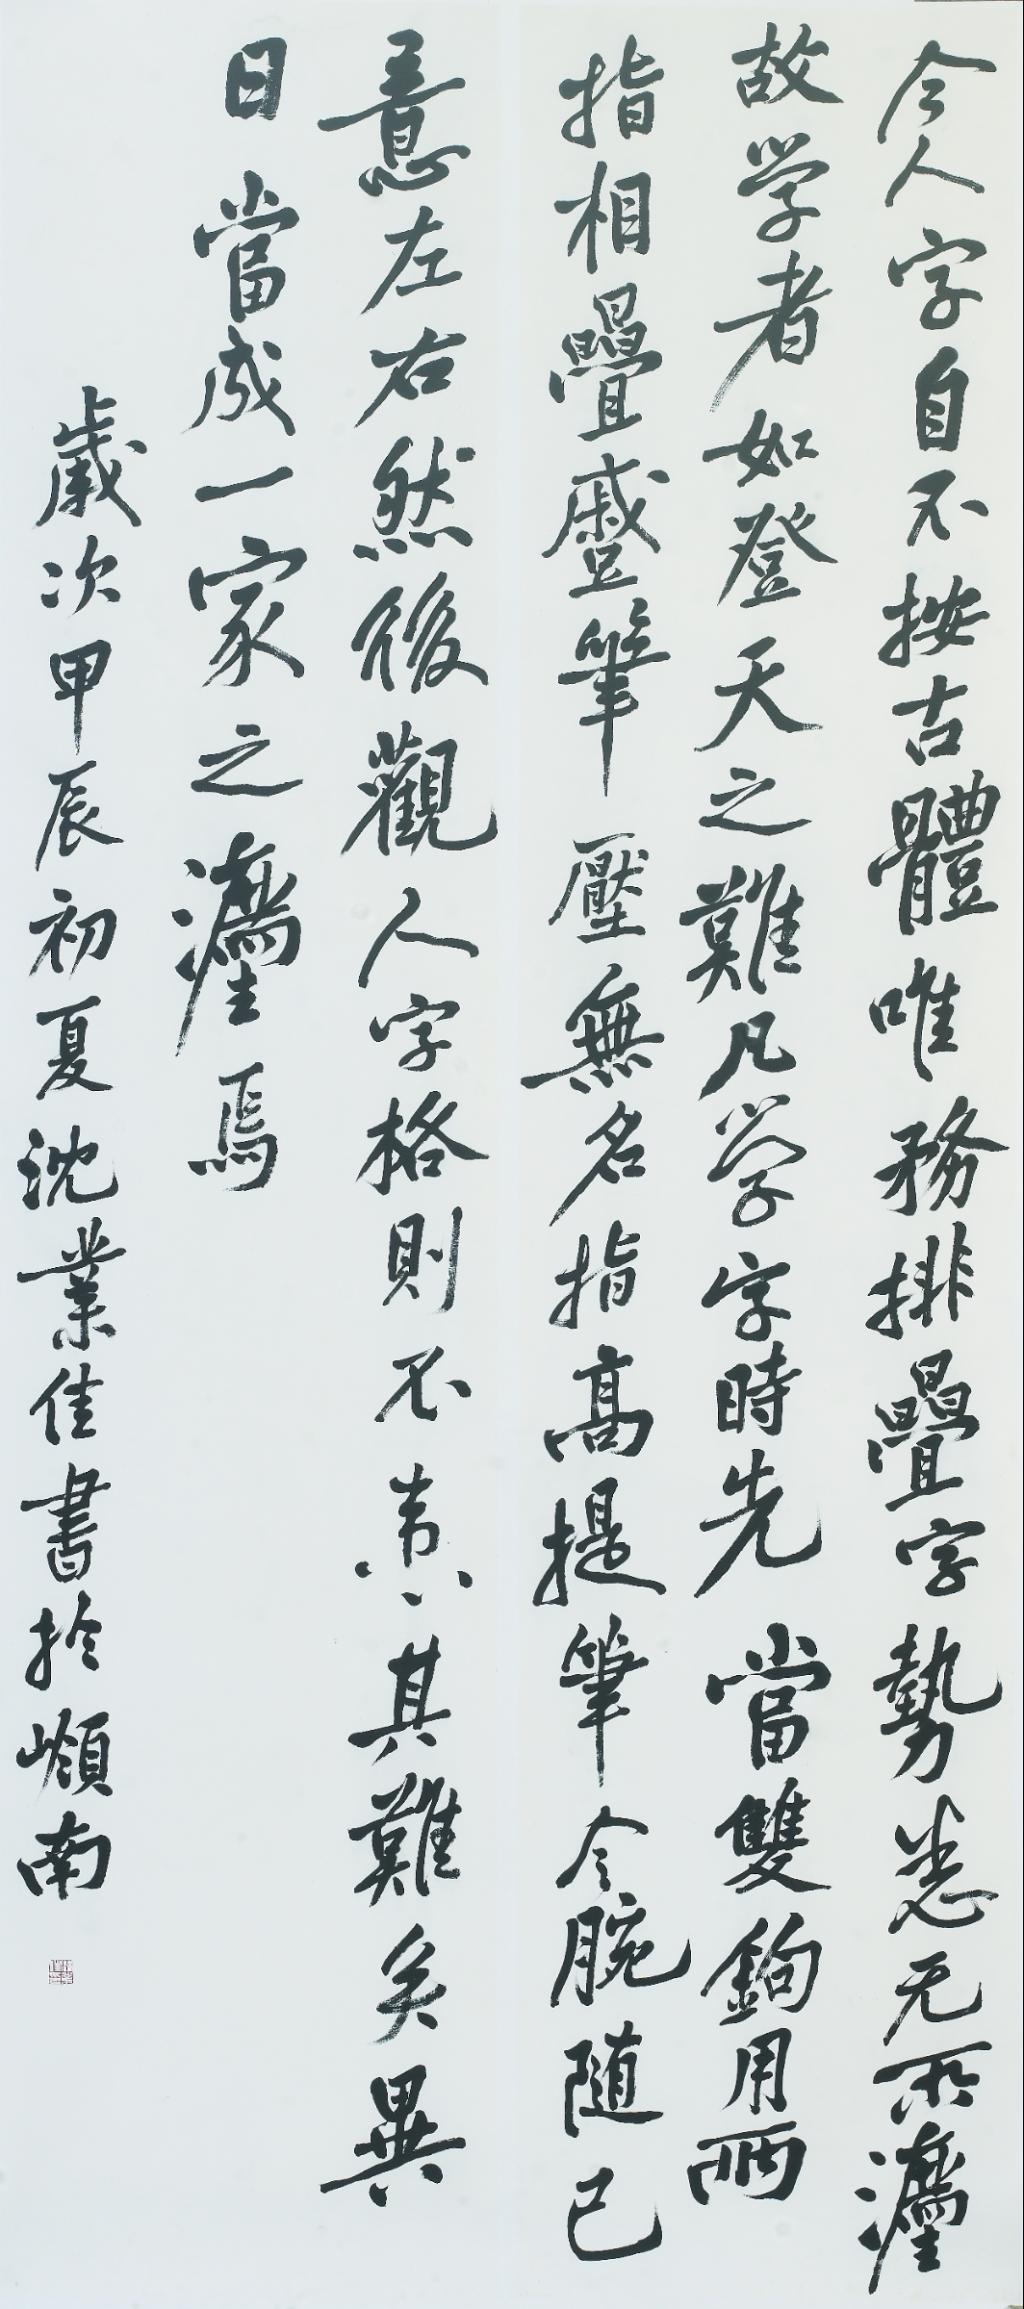 今人字自不按古體唯務排疊字勢悉无所灋
故学者如登天之難凡学字時先當雙鉤用兩
指相疊蹙筆壓無名指高提筆令腕随己
意左右然後觀人字格則不患其難矣異
日當成一家之灋焉
歲次甲辰初夏沈業佳書於嶺南